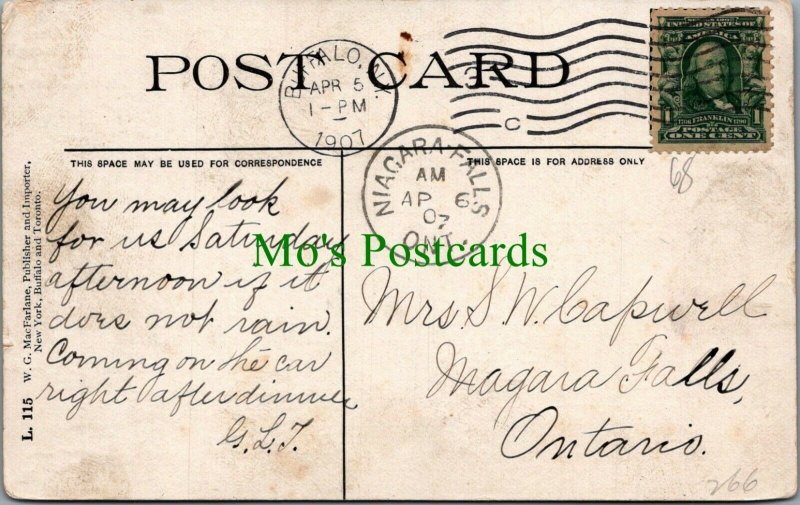 POST CARD
BUFFALO, N.Y.
APR 5
1-PM
1907
C
SERIES 1902
UNITED STATES OF
AMERICA
1 1706 FRANKLIN 1790 1
POSTAGE
ONE CENT
68
THIS SPACE MAY BE USED FOR CORRESPONDENCE
THIS SPACE IS FOR ADDRESS ONLY
NIAGARA-FALLS
AM
AP 6
07
ONT.
L. 115 W. G. MacFarlane, Publisher and Importer,
New York, Buffalo and Toronto.
You may look
for us Saturday
afternoon if it
does not rain.
Coming on the car
right after dinner
G.L.T.
Mo's Postcards
Mrs. S. W. Capwell
Niagara Falls,
Ontario.
266